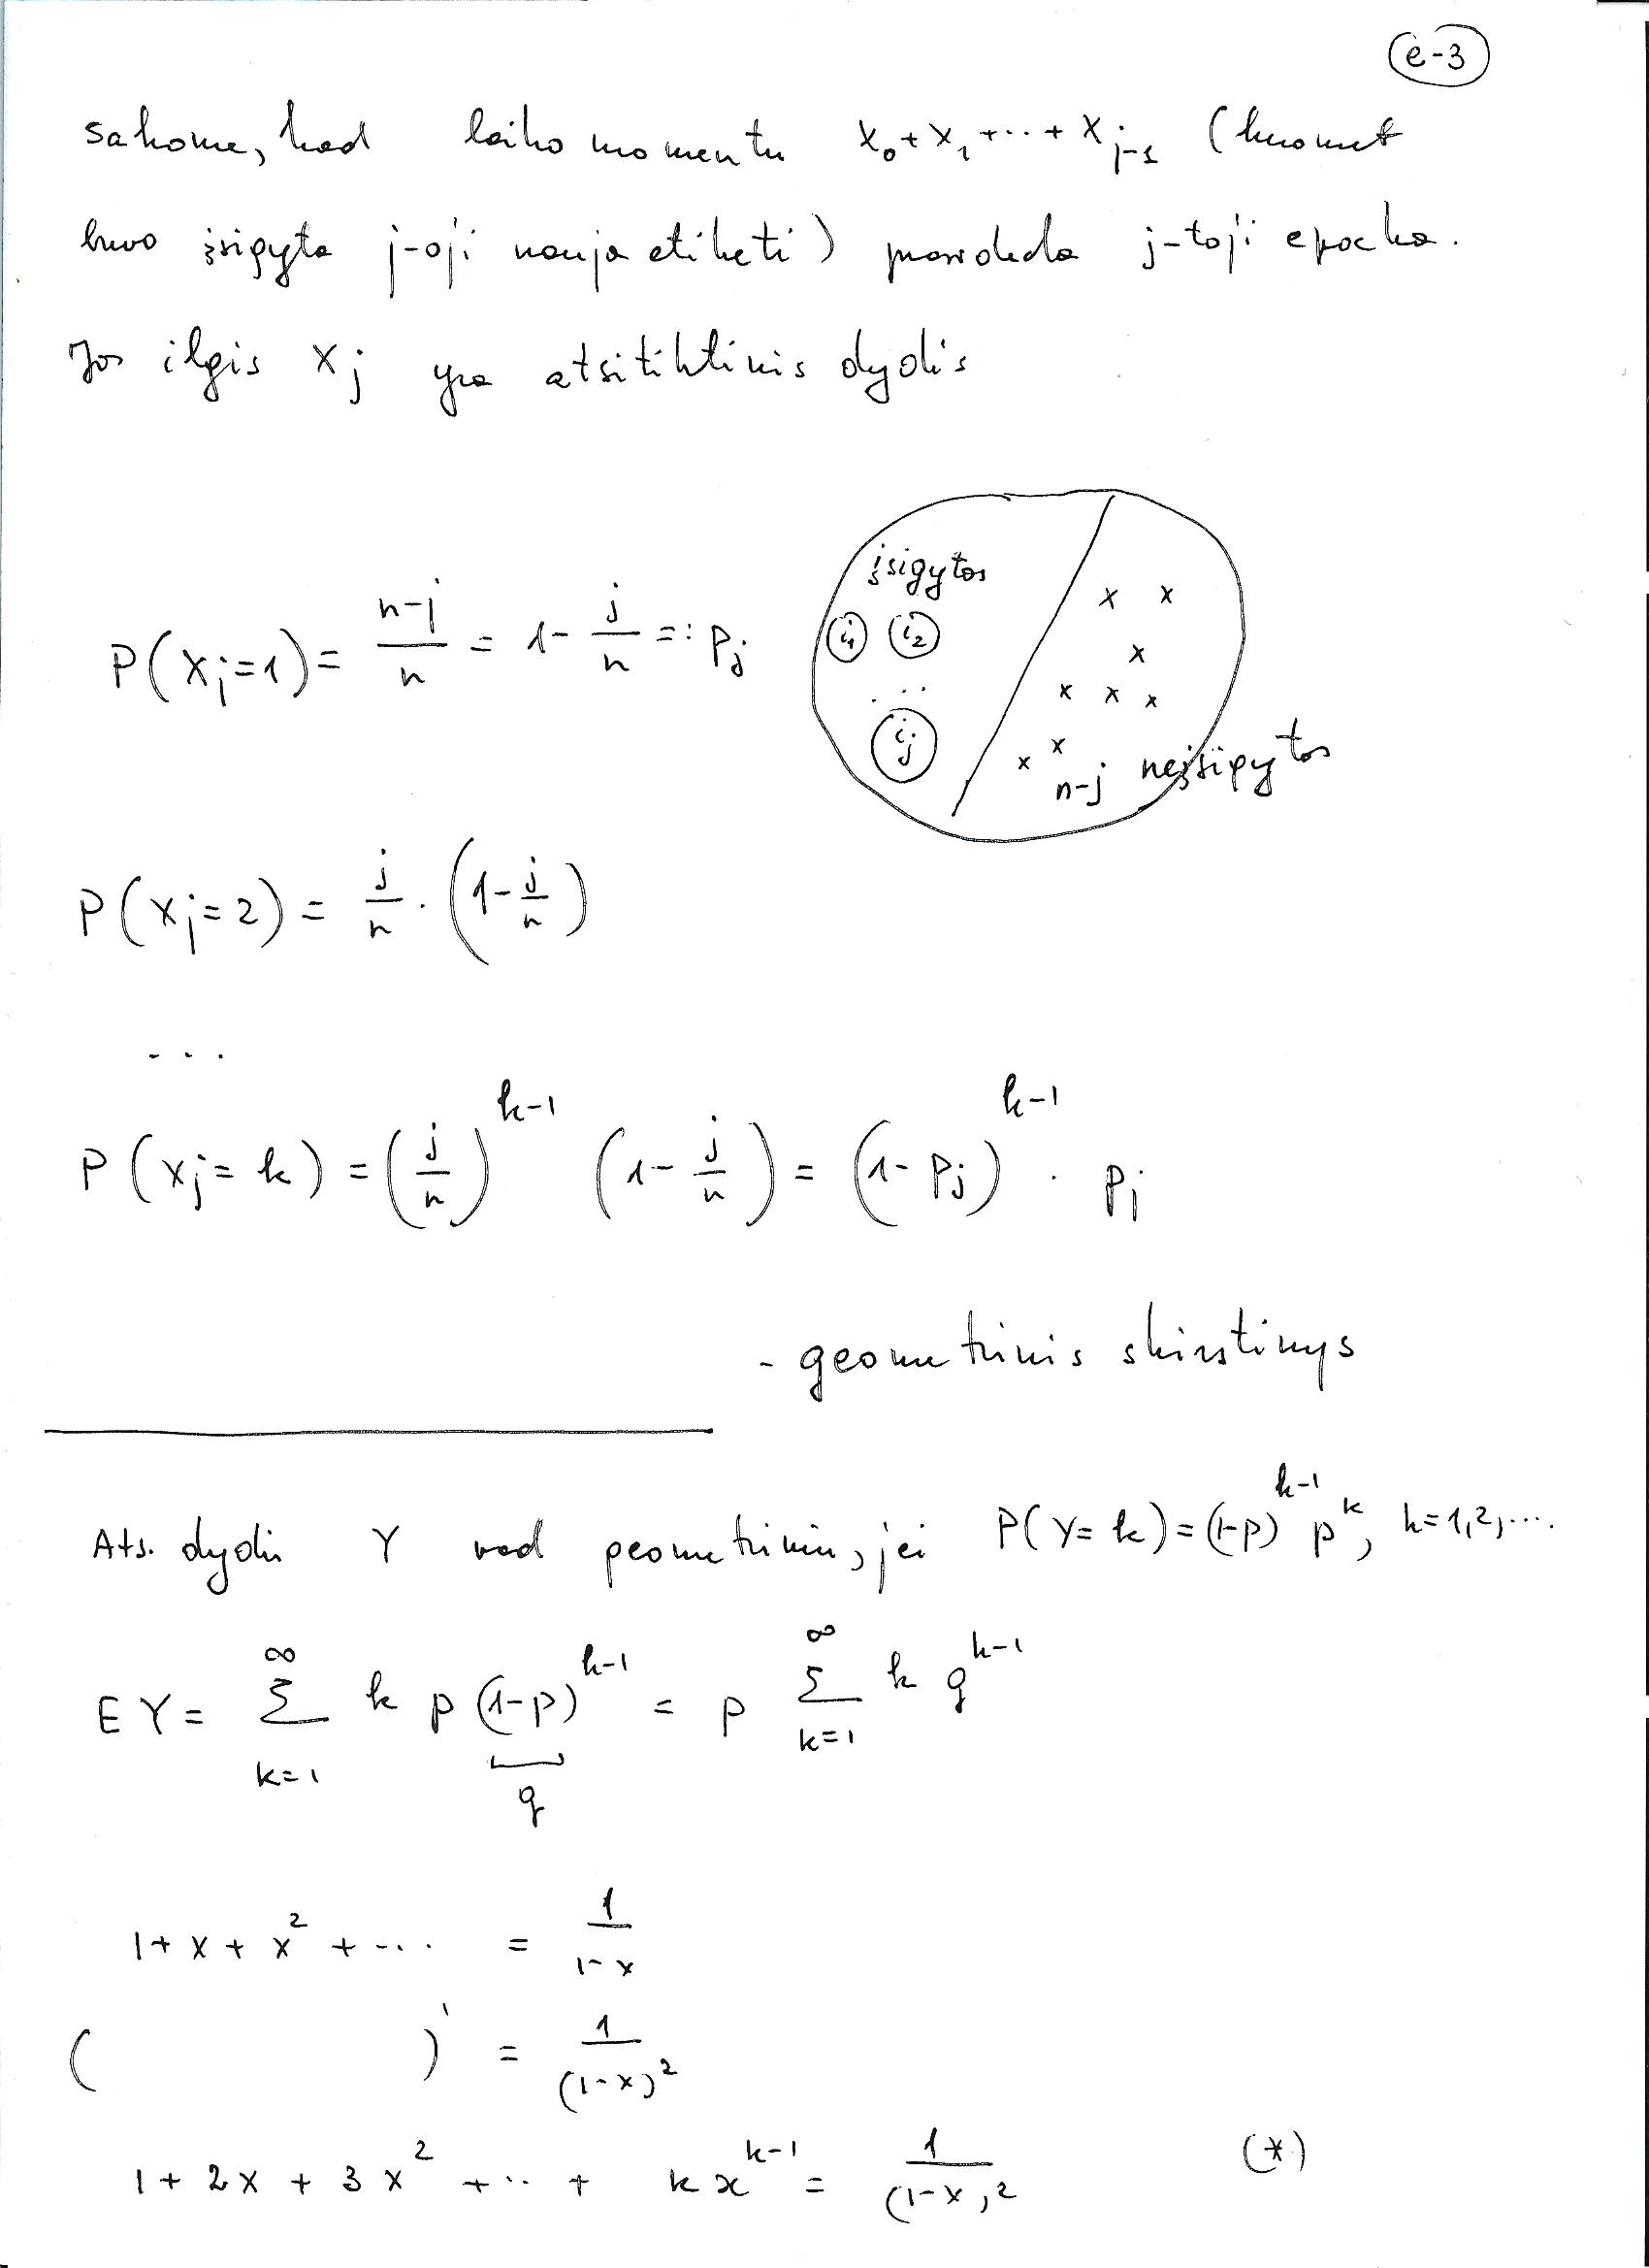 e-3
sakome, kad laiko momentu X₀+X₁+···+X_{j-1} (kuomet
buvo įsigyta j-oji nauja etiketė) prasideda j-toji epocha.
Jos ilgis X_j yra atsitiktinis dydis
įsigytos
i₁ i₂
P(X_j=1)= \frac{n-j}{n} = 1- \frac{j}{n} =: p_j
x x
x
...
x x x
i_j
x x
n-j neįsigytos
P(X_j=2) = \frac{j}{n} · (1-\frac{j}{n})
...
P(X_j=k) = (\frac{j}{n})^{k-1} (1-\frac{j}{n}) = (1-p_j)^{k-1} · p_j
- geometrinis skirstinys
Ats. dydį Y vad geometriniu, jei P(Y=k)=(1-p)^{k-1} p^k, k=1,2,....
EY = \sum_{k=1}^{∞} k p \underbrace{(1-p)}_{q}^{k-1} = p \sum_{k=1}^{∞} k q^{k-1}
1+x+x²+... = \frac{1}{1-x}
( )' = \frac{1}{(1-x)²}
1+2x+3x²+...+ k x^{k-1} = \frac{1}{(1-x)²} (*)